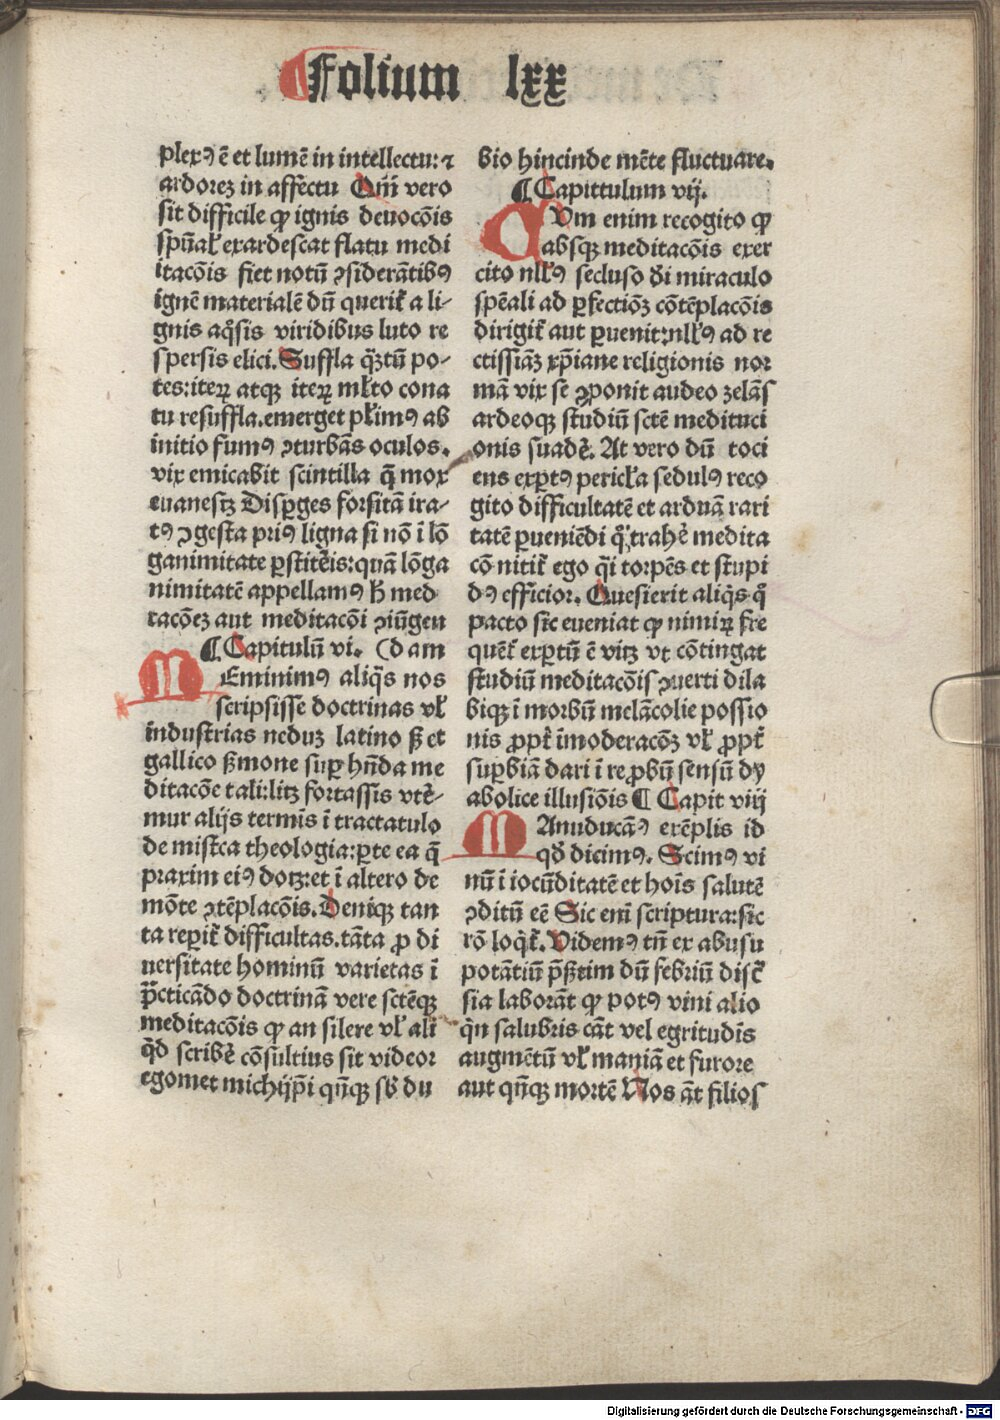 Folium lxx
plexꝰ ē et lumē in intellectu: ⁊
ardoreꝫ in affectu Qm̄ vero
sit difficile ꝙ ignis deuoc̄ōis
spūal̓ exardescat flatu medi
itacōis fiet notū ꝯsiderātibꝰ
ignē materialē dū querit̓ a li-
gnis aq̄sis viridibus luto re
spersis elici. Suffla q̄ꝫtū po-
tes: iteꝝ atqꝫ iteꝝ ml̓to cona
tu resuffla. emerget pl̓imꝰ ab
initio fumꝰ ꝯturbās oculos.
vix emicabit scintilla q̄ mox
euanesꝫ Disꝑges forsitā ira-
tꝰ ꝯgesta priꝰ ligna si nō ī lō
ganimitate ꝑstitēis: quā lōga
nimitatē appellamꝰ h̄ med
racōeꝫ aut meditacōi ꝯiūgen
¶ Capitulū vi. (dam
MEminimꝰ aliq̄s nos
scripsisse doctrinas vl̓
industrias neduꝫ latino ẜꝫ et
gallico ẜmone suꝑ hn̄da me
ditacōe tali: litꝫ fortassis vtē-
mur alijs termīs ī tractatulo
de mistica theologia: ꝑte ea q̄
praxim eiꝰ dotꝫ: et ī altero de
mōte ꝯtēplacōis. Deniqꝫ tan
ta reꝑit̓ difficultas. tāta ꝓ di
uersitate hominū varietas ī
p̄cticādo doctrinā vere sctēqꝫ
meditacōis ꝙ an silere vl̓ ali
q̄d scribē cōsultius sit videor
egomet michijp̄i qn̄qꝫ sb̓ du
bio hincinde mēte fluctuare.
¶ Capittulum vij.
CVm enim recogito ꝙ
absqꝫ meditacōis exer
cito nll̓ꝰ secluso di miraculo
spēali ad ꝑfectiōꝫ cōtēplacōis
dirigit̓ aut ꝑuenit: nll̓ꝰ ad re
ctissiāꝫ xp̄iane religionis nor
mā vix se ꝓponit audeo zelās
ardeoqꝫ studiū sctē medituci
onis suadē. At vero dū toci
ens exꝑtꝰ pericl̓a sedulꝰ reco
gito difficultatē et arduā rari
tatē ꝑueniēdi q̄ trahē medita
cō nitit̓ ego q̄i torpēs et stupi
dꝰ efficior. Quesierit aliq̄s q̄
pacto sic eueniat ꝙ nimiꝝ fre
quēt̓ exꝑtū ē vitꝫ vt cōtingat
studiū meditacōis ꝯuerti dila
biqꝫ ī morbū melācolie possio
nis ꝓpt̓ īmoderacōꝫ vl̓ ꝓpt̓
suꝑbiā dari ī reꝓbū sensū dy
abolice illusiōis ¶ Capit viij
MAnuducāꝰ exēplis id
qd̓ dicimꝰ. Scimꝰ vi
nū ī iocūditatē et hoīs salutē
ꝯditū eē Sic enī scriptura: sic
rō loq̄t̓. Videmꝰ tn̄ ex abusu
potātiū p̄ẜtim dū febriū disc̄
sia laborāt ꝙ potꝰ vini alio
q̄n salubris cāt vel egritudīs
augmētū vl̓ maniā et furore
aut qn̄qꝫ mortē Nos āt filios
Digitalisierung gefördert durch die Deutsche Forschungsgemeinschaft - DFG